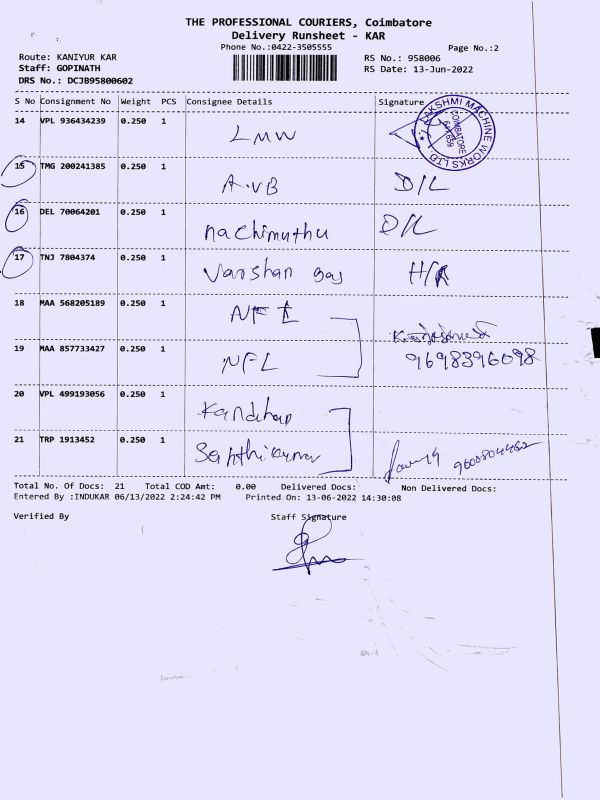 THE PROFESSIONAL COURIERS, Coimbatore
Delivery Runsheet - KAR
Phone No.:0422-3505555
Page No.:2
Route: KANIYUR KAR
RS No.: 958006
Staff: GOPINATH
RS Date: 13-Jun-2022
DRS No.: DCJB95800602
S No Consignment No Weight PCS Consignee Details Signature
14 VPL 936434239 0.250 1 LMW
LAKSHMI MACHINE WORKS LTD.
COIMBATORE
15 TMG 200241385 0.250 1 A.VB D/L
16 DEL 70064201 0.250 1 Nachimuthu D/L
17 TNJ 7804374 0.250 1 Varshan gas H/R
18 MAA 568205189 0.250 1 NFL
19 MAA 857733427 0.250 1 NFL 9698396098
20 VPL 499193056 0.250 1
21 TRP 1913452 0.250 1 9600804462
Total No. Of Docs: 21 Total COD Amt: 0.00 Delivered Docs: Non Delivered Docs:
Entered By :INDUKAR 06/13/2022 2:24:42 PM Printed On: 13-06-2022 14:30:08
Verified By Staff Signature